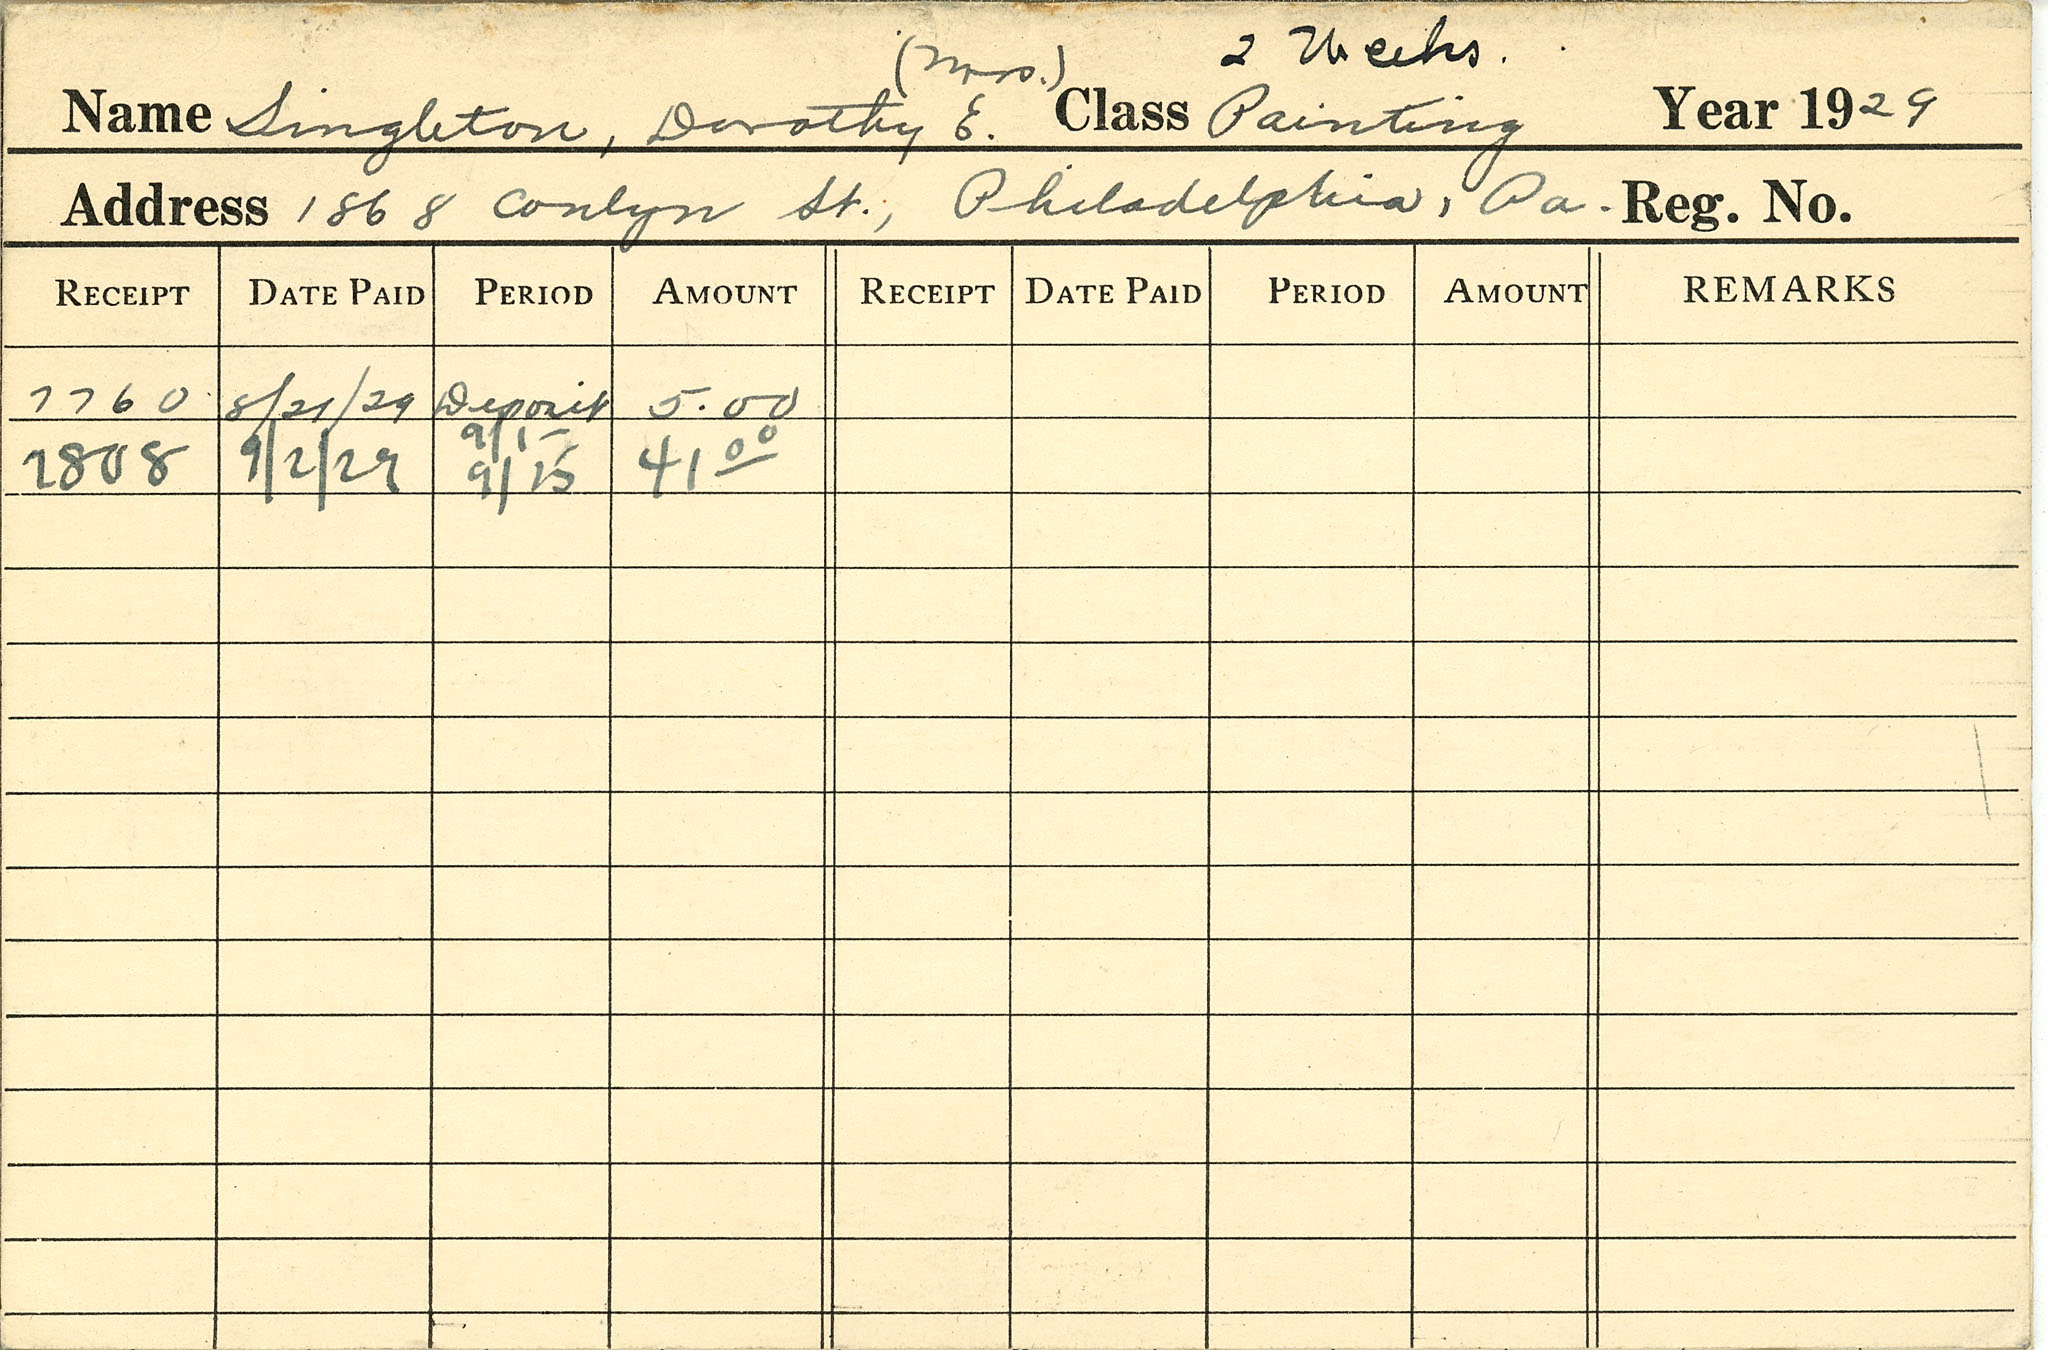 (Mrs.) 2 Weeks.
Name Singleton, Dorothy E. Class Painting Year 1929
Address 1868 Conlyn St., Philadelphia, Pa. Reg. No.
RECEIPT DATE PAID PERIOD AMOUNT RECEIPT DATE PAID PERIOD AMOUNT REMARKS
7760 8/21/29 Deposit 5.00
9/1-
7808 9/2/29 9/15 41.00